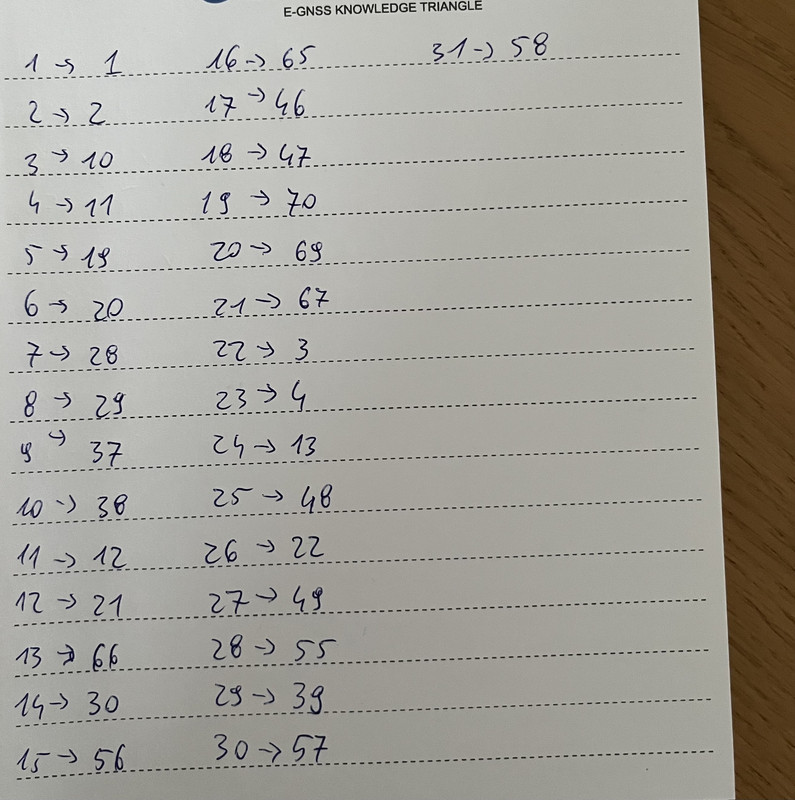 E-GNSS KNOWLEDGE TRIANGLE
1 → 1 16 → 65 31 → 58
2 → 2 17 → 46
3 → 10 18 → 47
4 → 11 19 → 70
5 → 19 20 → 69
6 → 20 21 → 67
7 → 28 22 → 3
8 → 29 23 → 4
9 → 37 24 → 13
10 → 38 25 → 48
11 → 12 26 → 22
12 → 21 27 → 49
13 → 66 28 → 55
14 → 30 29 → 39
15 → 56 30 → 57